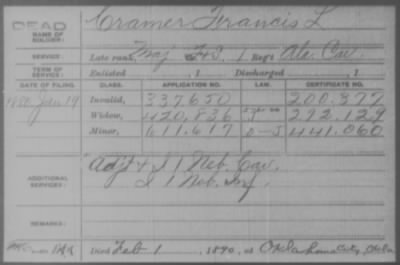 DEAD
Cramer Francis L
NAME OF SOLDIER:
SERVICE: Late rank, Maj F&S, 1 Reg't Ala. Cav.
TERM OF SERVICE: Enlisted , 1 Discharged , 1
DATE OF FILING. CLASS. APPLICATION NO. LAW. CERTIFICATE NO.
1880 Jan 19 Invalid, 337650 200.377
Widow, 420,836 292,129
Minor, 611.617 441.060
ADDITIONAL SERVICES: Adjt & I 1 Neb. Cav.
I 1 Neb. Inf.
REMARKS:
Died Feb 1, 1890, at Oklahoma City, Okla